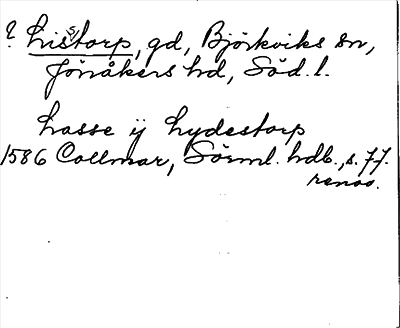 ? Lis(s)torp, gd, Björkviks sn,
Jönåkers hd, Söd. l.
Lasse ij Lydestorp
1586 Collmar, Sörml. hdb., s. 77.
renov.